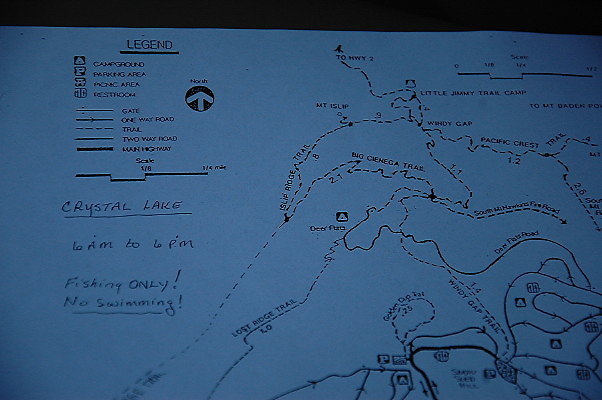 LEGEND
CAMPGROUND
PARKING AREA
PICNIC AREA
RESTROOM
GATE
ONE WAY ROAD
TRAIL
TWO WAY ROAD
MAIN HIGHWAY
Scale
1/8 1/4 mile
North
CRYSTAL LAKE
6 AM to 6 PM
Fishing ONLY!
No swimming!
TO HWY 2
Scale
0 1/8 1/4 1/2
LITTLE JIMMY TRAIL CAMP
TO MT BADEN
MT ISLIP
WINDY GAP
PACIFIC CREST TRAIL
1.2
.9
ISLIP RIDGE TRAIL
.8
BIG CIENEGA TRAIL
2.1
1.1
2.5
South Mt Hawkins Fire Road
Deer Flats
Deer Flats Road
LOST RIDGE TRAIL
1.0
.25
1.4
WINDY GAP TRAIL